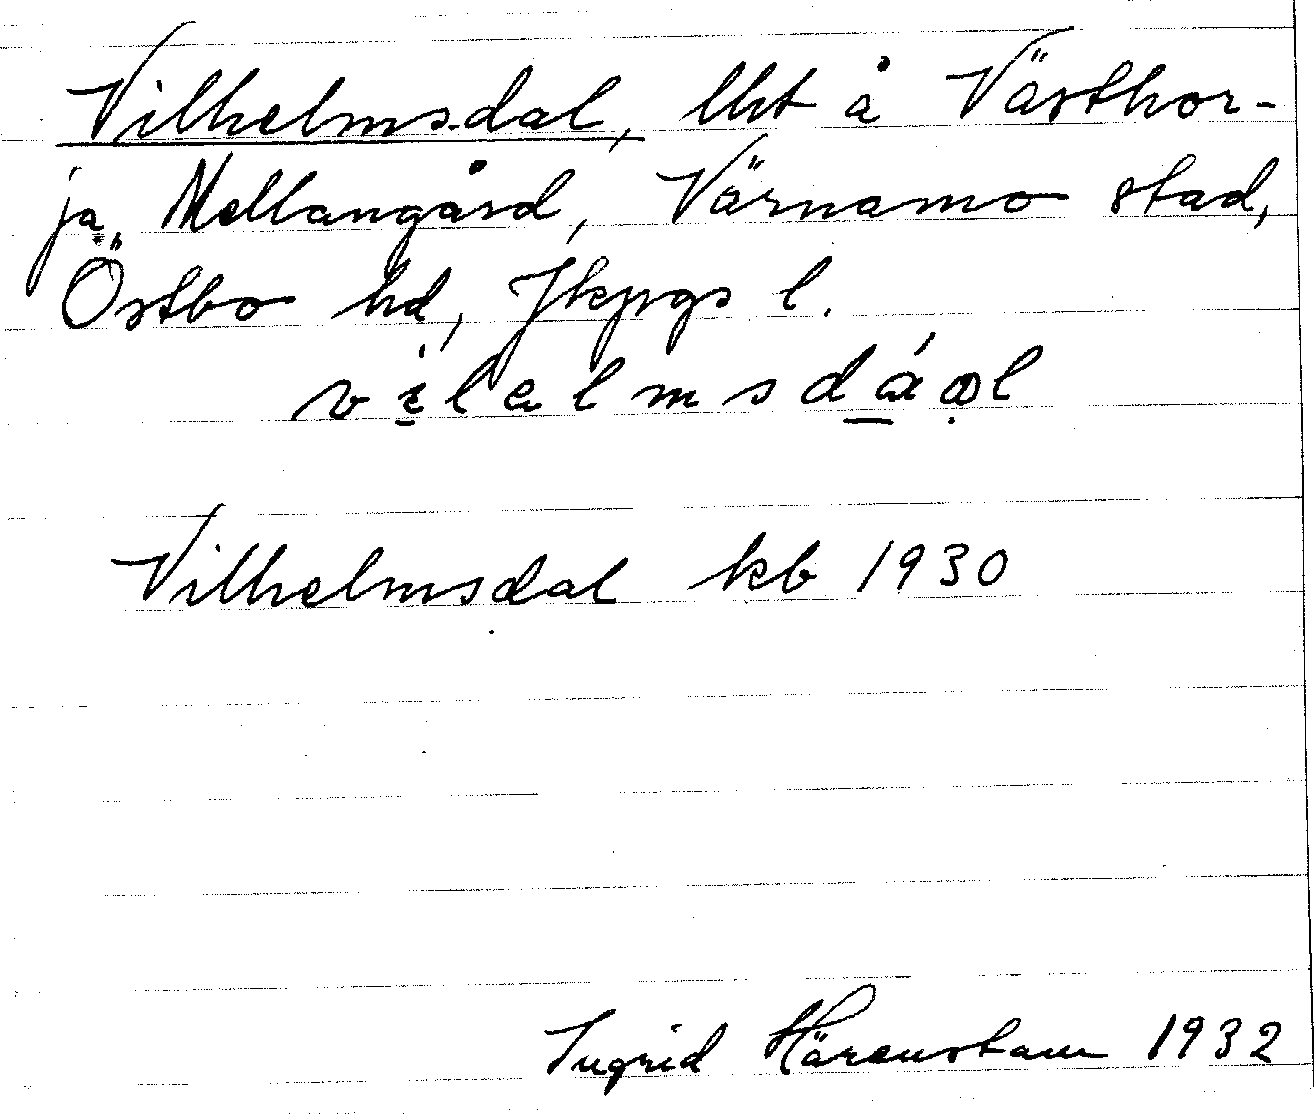 Vilhelmsdal, lht å Västhor-
ja Mellangård, Värnamo stad,
Östbo hd, Jkpgs l.
Vilhelmsdal kb 1930
Ingrid Härenstam 1932